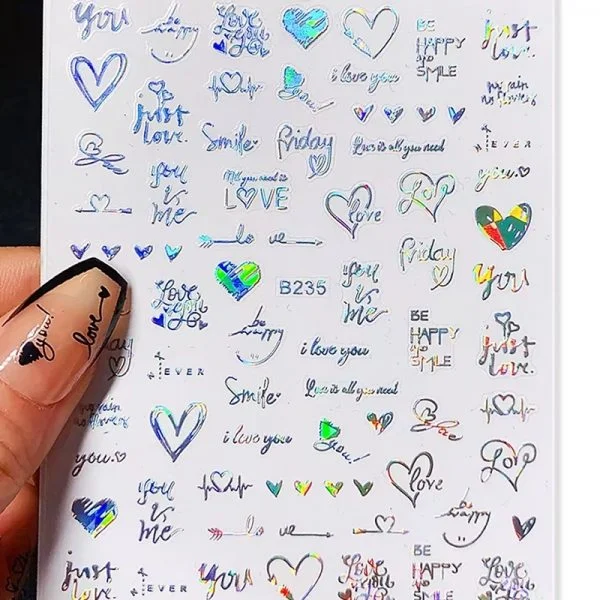 you
be
happy
Love
you
BE
HAPPY
AND
SMILE
just
love.
i love you
just
love.
you!
no rain
no flowers
Smile
friday
Love is all you need
EVER
you
is
me
All you need is
LOVE
love
Love
you.
lo ve
friday
you
B235
Love
you
you
is
me
BE
HAPPY
AND
SMILE
be
happy
i love you
just
love.
you!
love
EVER
Smile
Love is all you need
no rain
no flowers
i love you
you!
love
you.
love
Love
you
is
me
lo ve
be
happy
just
love.
EVER
you
Love
you
BE
HAPPY
AND
SMILE
Love
you